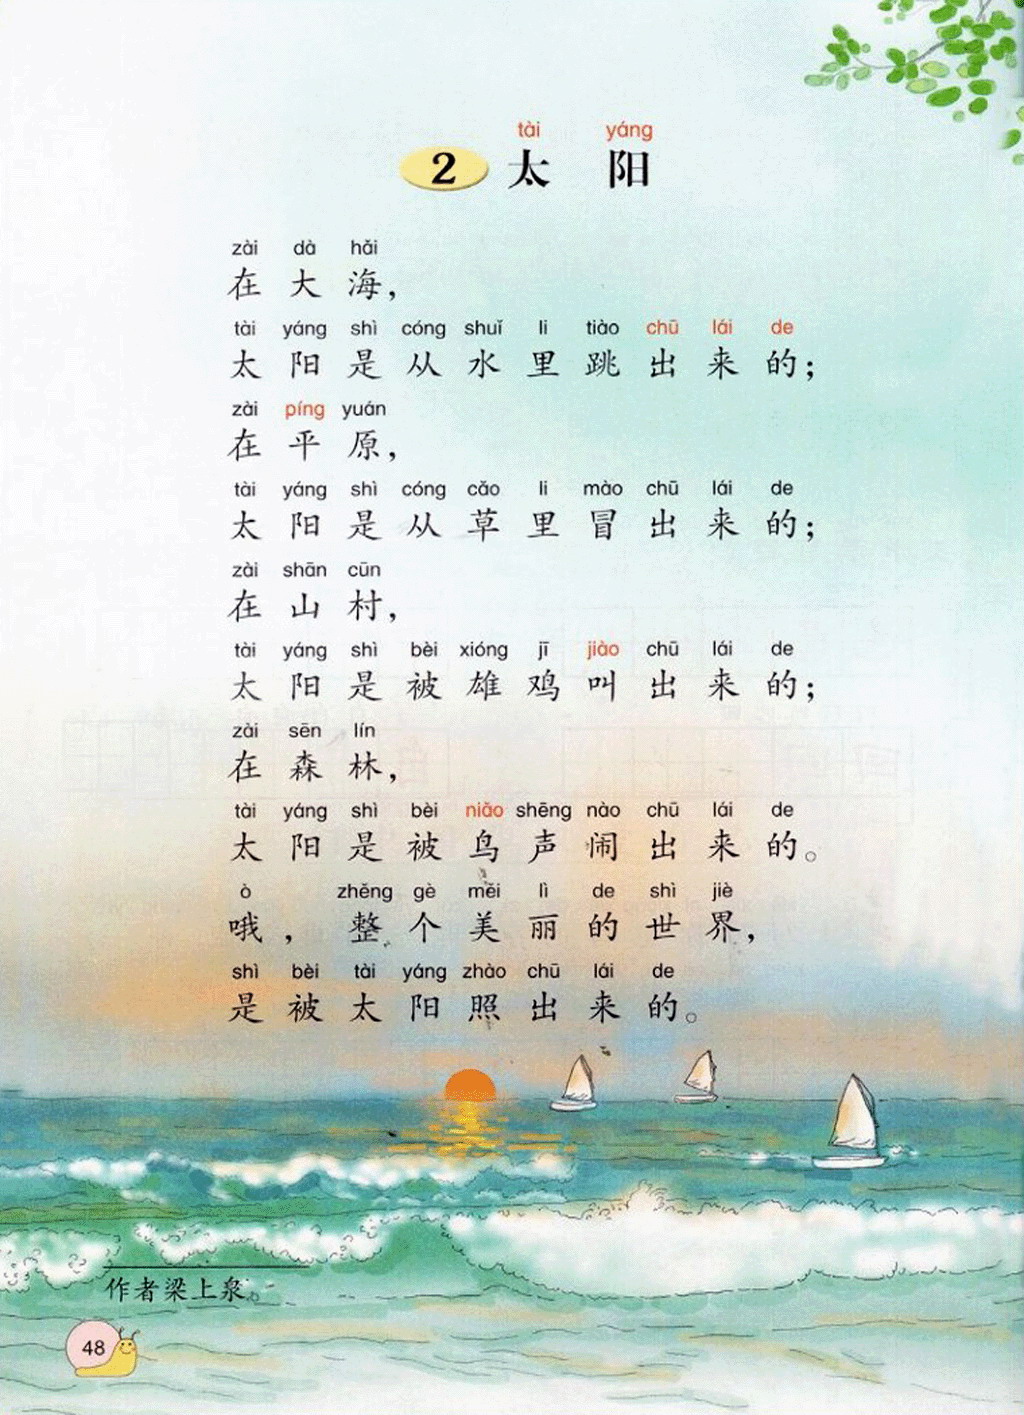 tài yáng
2 太 阳
zài dà hǎi
在 大 海，
tài yáng shì cóng shuǐ li tiào chū lái de
太 阳 是 从 水 里 跳 出 来 的；
zài píng yuán
在 平 原，
tài yáng shì cóng cǎo li mào chū lái de
太 阳 是 从 草 里 冒 出 来 的；
zài shān cūn
在 山 村，
tài yáng shì bèi xióng jī jiào chū lái de
太 阳 是 被 雄 鸡 叫 出 来 的；
zài sēn lín
在 森 林，
tài yáng shì bèi niǎo shēng nào chū lái de
太 阳 是 被 鸟 声 闹 出 来 的。
ò zhěng gè měi lì de shì jiè
哦， 整 个 美 丽 的 世 界，
shì bèi tài yáng zhào chū lái de
是 被 太 阳 照 出 来 的。
作者梁上泉。
48